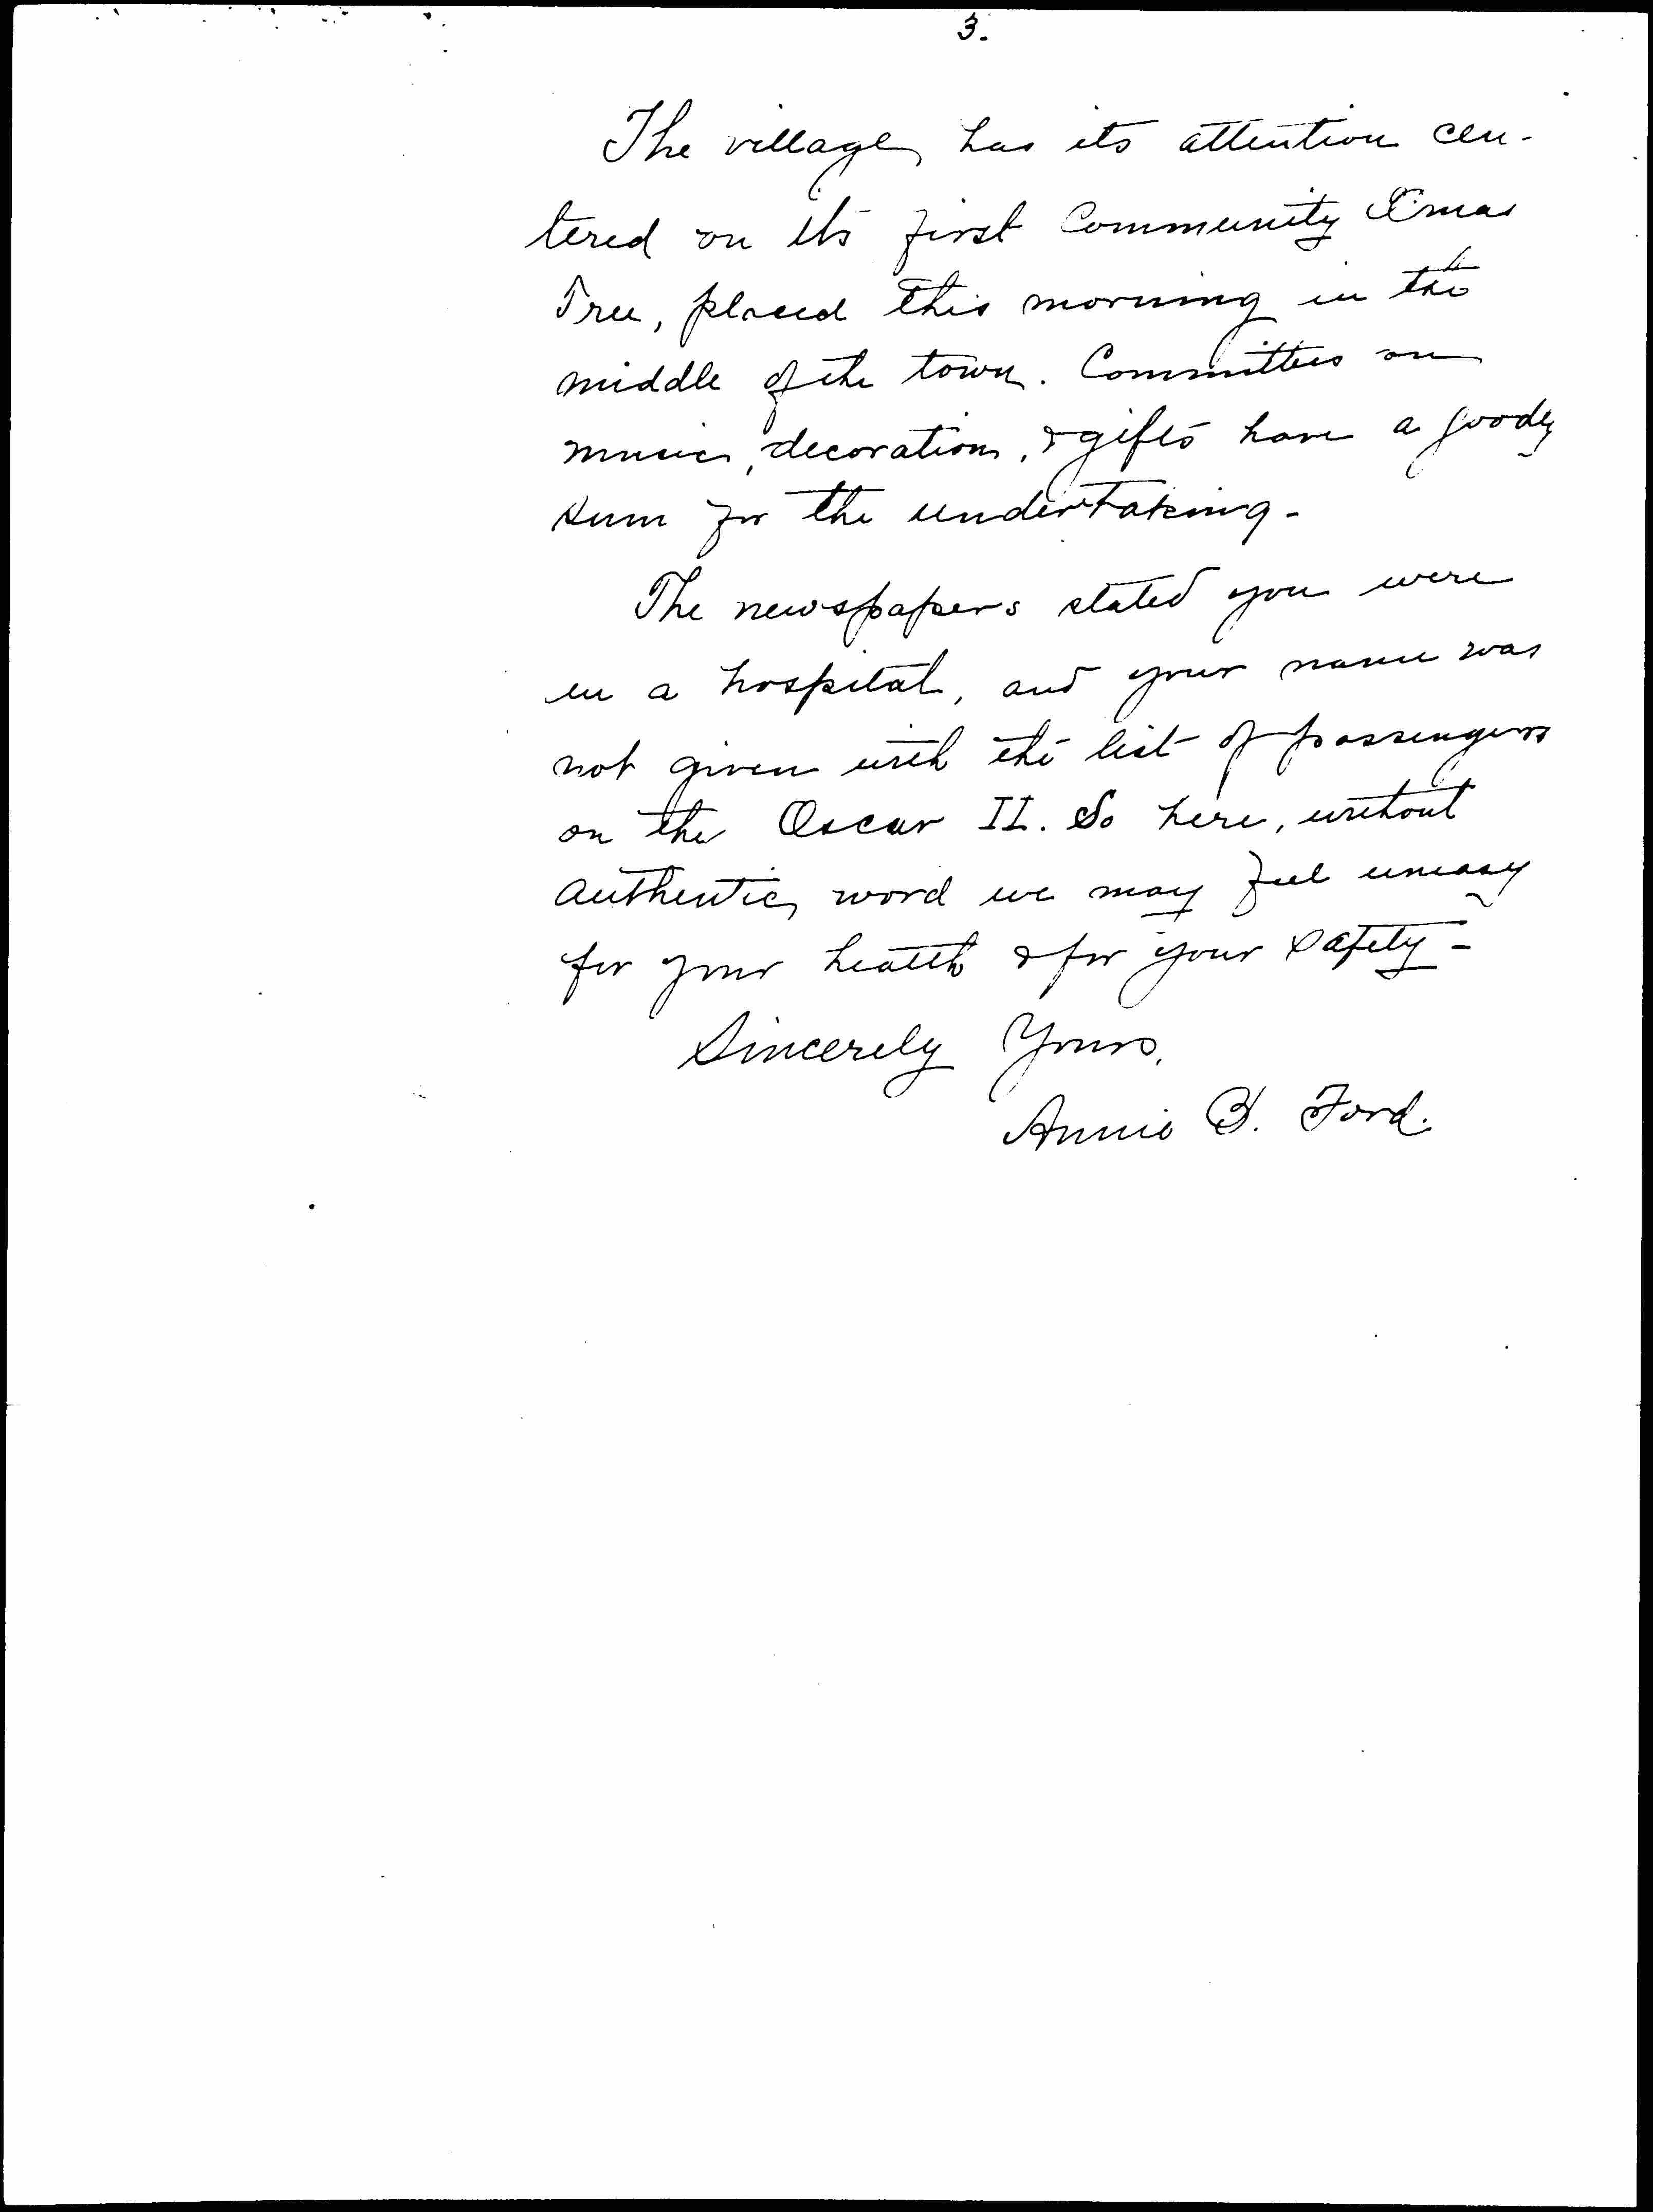 3.
The village has its attention cen-
tered on its first Community Xmas
Tree, placed this morning in the
middle of the town. Committees on
music, decoration, & gifts have a goodly
sum for the undertaking-
The newspapers stated you were
in a hospital, and your name was
not given with the list of passengers
on the Oscar II. So here, without
authentic word we may feel uneasy
for your health & for your safety-
Sincerely Yours,
Annie B. Ford.